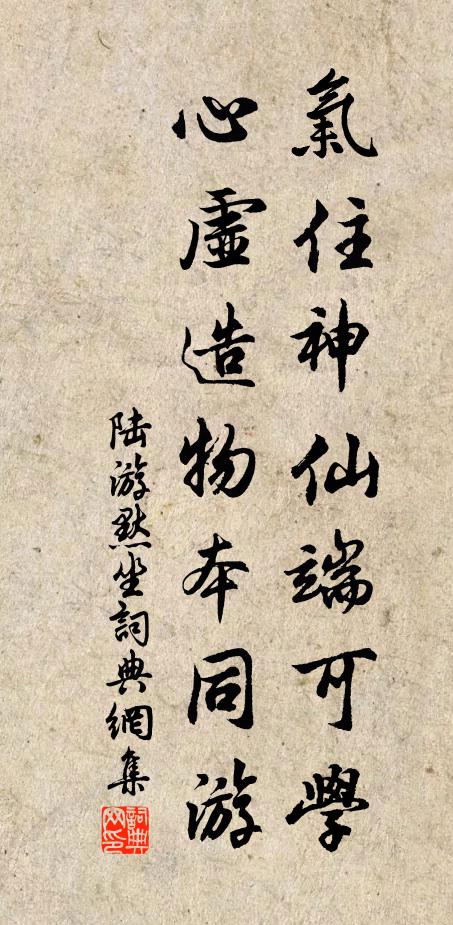 氣住神仙端可學
心虛造物本同游
陆游默坐詞典網集
詞典網印